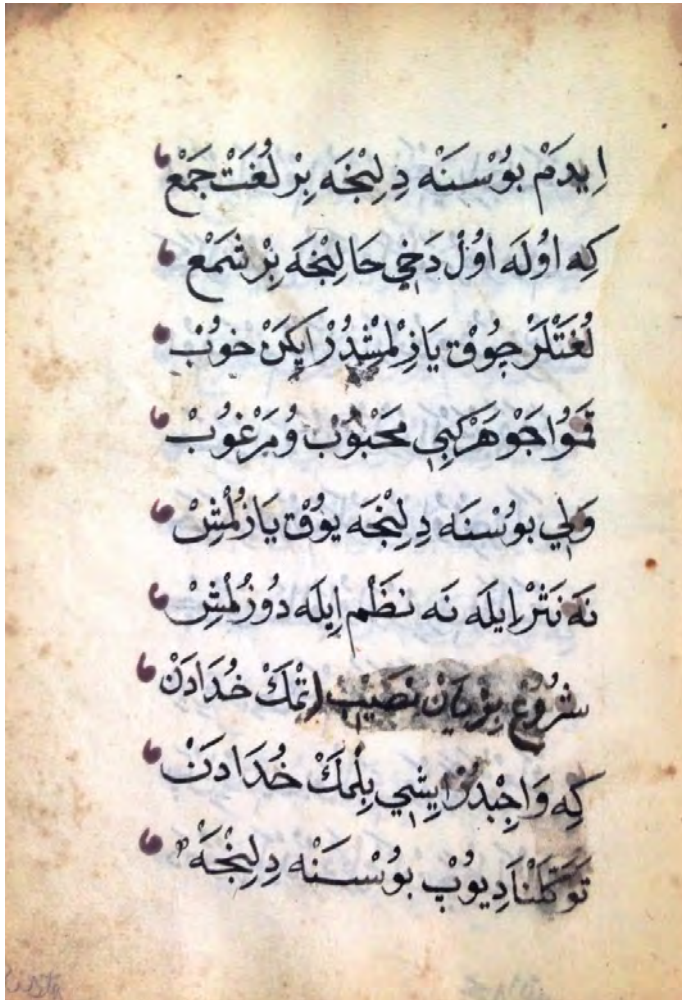 اِیدَمْ بوُسْنَه دِلِنْجَه بِرْ لُغَتْ جَمْعْ
كِه اوُلَه اوُلْ دَخِي حَالِنْجَه بِرْ شَمْعْ
لُغَتْلَرْ چوُقْ يَازِلْمِشْدُرْ اِيكَنْ خوُبْ
قَمُو اجَوْهَرْ كِبِي مَحْبُوبْ وُ مَرْغُوبْ
وَلِي بوُسْنَه دِلِنْجَه يوُقْ يَازِلْمِشْ
نَه نَثْرْ اِيلَه نَه نَظْمْ اِيلَه دُوزُلْمِشْ
شُرُوعْ نَصِيبْ اِتْمَكْ خُدَادَنْ
كِه وَاجِبْدُرْ اِيشِي بِلْمَكْ خُدَادَنْ
تَوَكَّلْنَا دِيوُبْ بوُسْنَه دِلِنْجَه